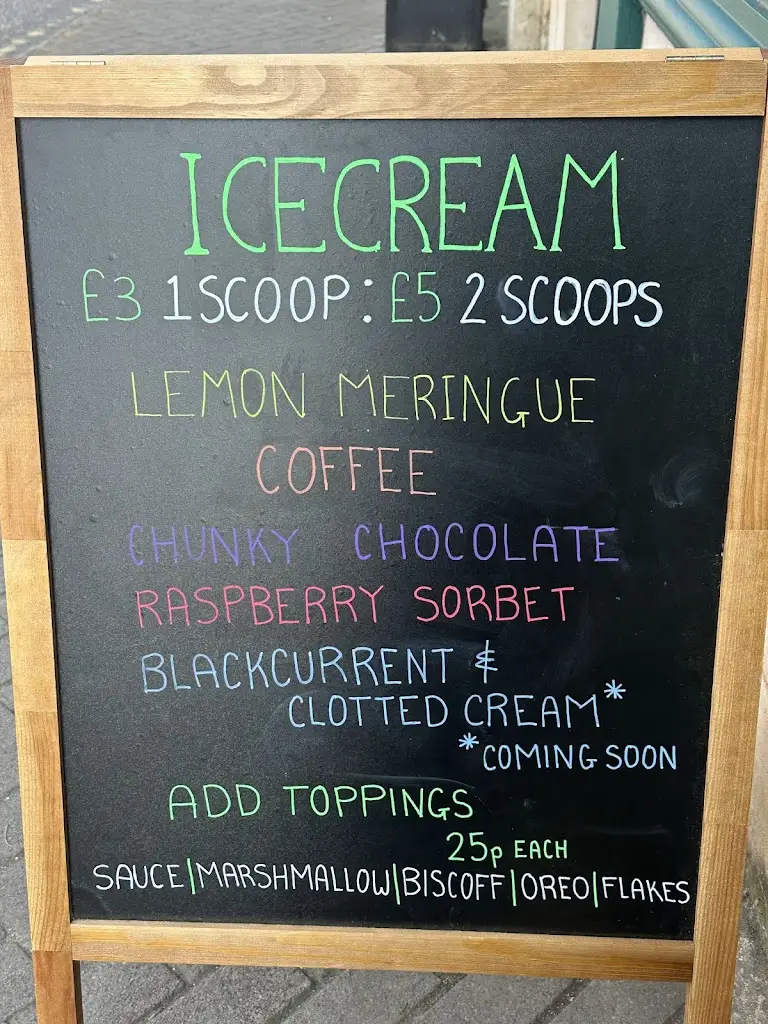 ICECREAM
£3 1 SCOOP : £5 2 SCOOPS
LEMON MERINGUE
COFFEE
CHUNKY CHOCOLATE
RASPBERRY SORBET
BLACKCURRENT &
CLOTTED CREAM*
*COMING SOON
ADD TOPPINGS
25p EACH
SAUCE|MARSHMALLOW|BISCOFF|OREO|FLAKES